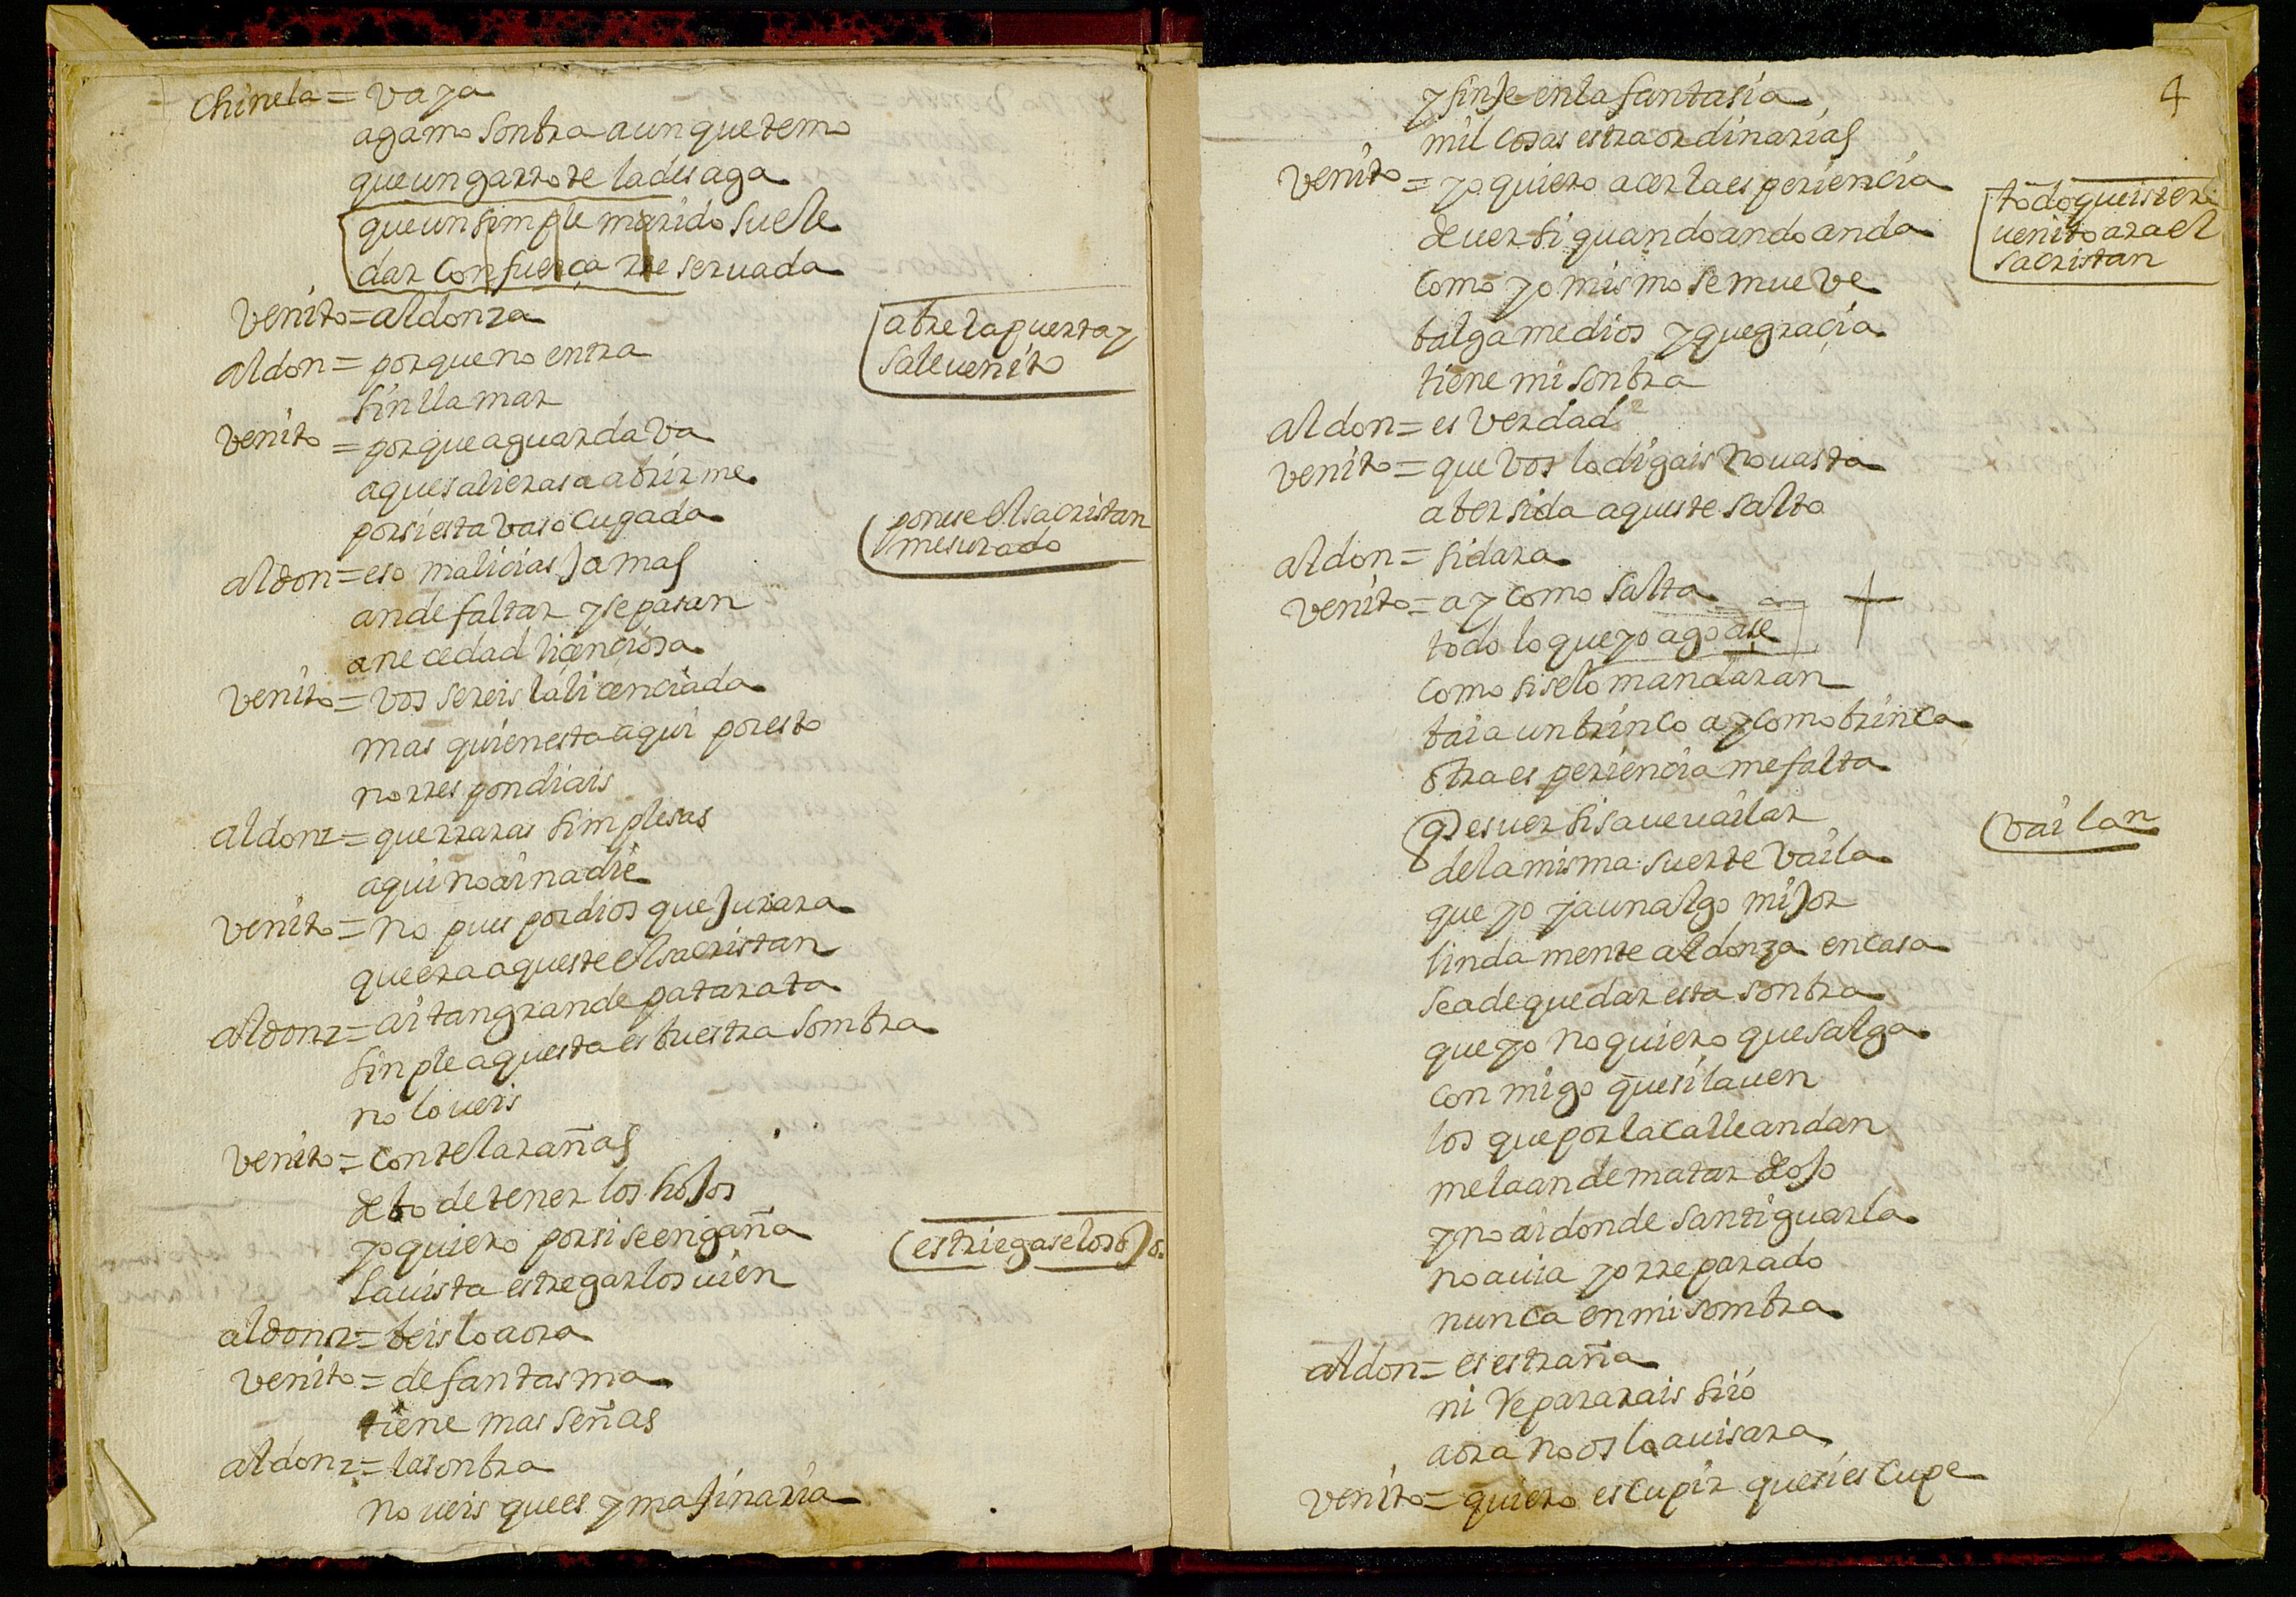 chinela = vaya
agamo sonbra aunque temo
que un garrote la desaga
que un simple marido suele
dar con fuerça rreseruada
venito = aldonza
abre la puerta y
sale uenito
aldon = porque no entra
sin llamar
venito = porque aguardava
a que salieras a abrirme
por si estavas ocupada
ponese el sacristan
mesurado
aldon = eso malicias jamas
an de faltar y se pasan
a necedad liçençiosa
venito = vos sereis la licenciada
mas quien esta aqui por esto
no rrespondiais
aldonz = que rraras simplesas
aqui no ai nadie
venito = no pues por dios que jurara
que era aqueste el sacristan
aldonz = ai tan grande patarata
sinple aquesta es buestra sombra
no lo ueis
venito = con telarañas
debo de tener los hojos
yo quiero por si se engaña
la uista estregarlos uien
estriegase los ojos
aldonz = beislo aora
venito = de fantasma
tiene mas señas
aldonz = la sonbra
no ueis que es ymajinaria
4
y finje en la fantasia
mil cosas estraordinarias
venito = yo quiero acer la esperiencia
de uer si quando ando anda
como yo mismo se mueve
balgame dios y que graçia
tiene mi sonbra
todo queisiere
uenito ara el
sacristan
aldon = es verdad
venito = que vos lo digais no uasta
a ber si da aqueste salto
aldon = si dara
venito = ay como salta
todo lo que yo ago açe
como si se lo mandaran
baia un brinco ay como brinca
otra esperiencia me falta
q es uer si saue uailar
vailan
de la misma suerte vaila
que yo y aun algo mijor
lindamente aldonza en casa
se a de quedar esta sonbra
que yo no quiero que salga
conmigo que si la uen
los que por la calle andan
me la an de matar de ojo
y no ai donde santiguarla
no auia yo rreparado
nunca en mi sombra
aldon = es estraña
ni repararais si io
aora no os lo auisara
venito = quiero escupir que si escupe